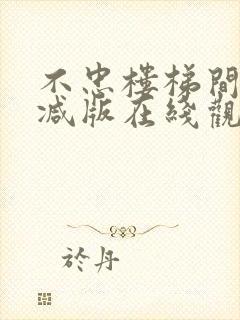 不忠樓梯間
减版在綫觀
於丹